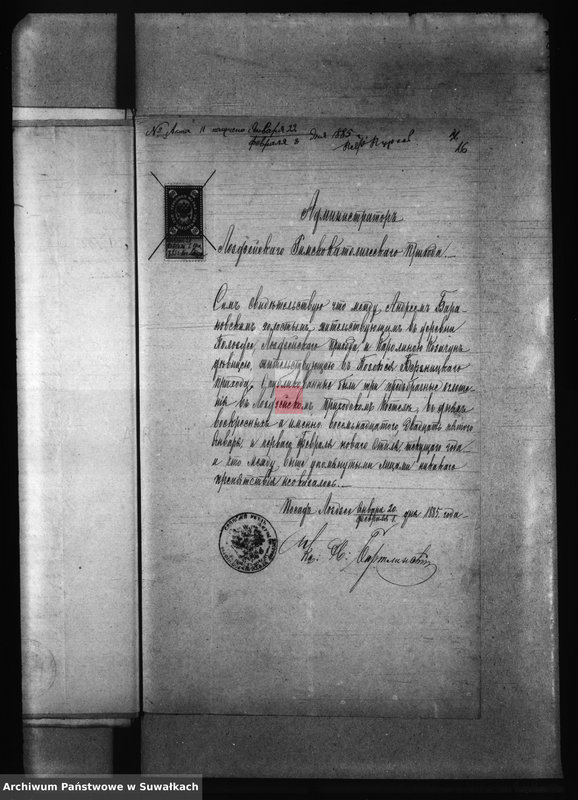 № Акта 11 получено Января 22
февраля 3 дня 1885
16
Администраторъ
Лоздзейскаго Римскокатолическаго прихода.
Симъ свидѣтельствую что между Андреемъ Бара-
новскимъ холостымъ, жительствующимъ въ деревни
Лоздзейскаго прихода, и Каролиною
дѣвицею, жительствующею въ
прихода, публикованы были три предбрачные оглаше-
нія въ Лоздзейскомъ Приходскомъ Костелѣ, въ дняхъ
воскресныхъ а именно: восемьнадцатаго двадцать пятого
Января и перваго Февраля новаго стиля текущаго года
и что между выше упомянутыми лицами никакаго
препятствія неоказалось.
Посадъ Лоздзее Января 20
февраля 1. дня 1885 года
Кс.
Archiwum Państwowe w Suwałkach